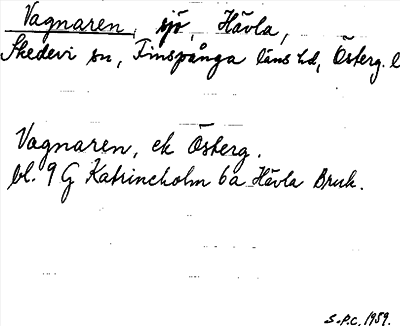 Vagnaren, sjö, Hävla,
Skedevi sn, Finspånga läns hd, Österg. l
Vagnaren, ek Österg.
bl. 9 G Katrineholm 6a Hävla Bruk.
S.P.C. 1959.